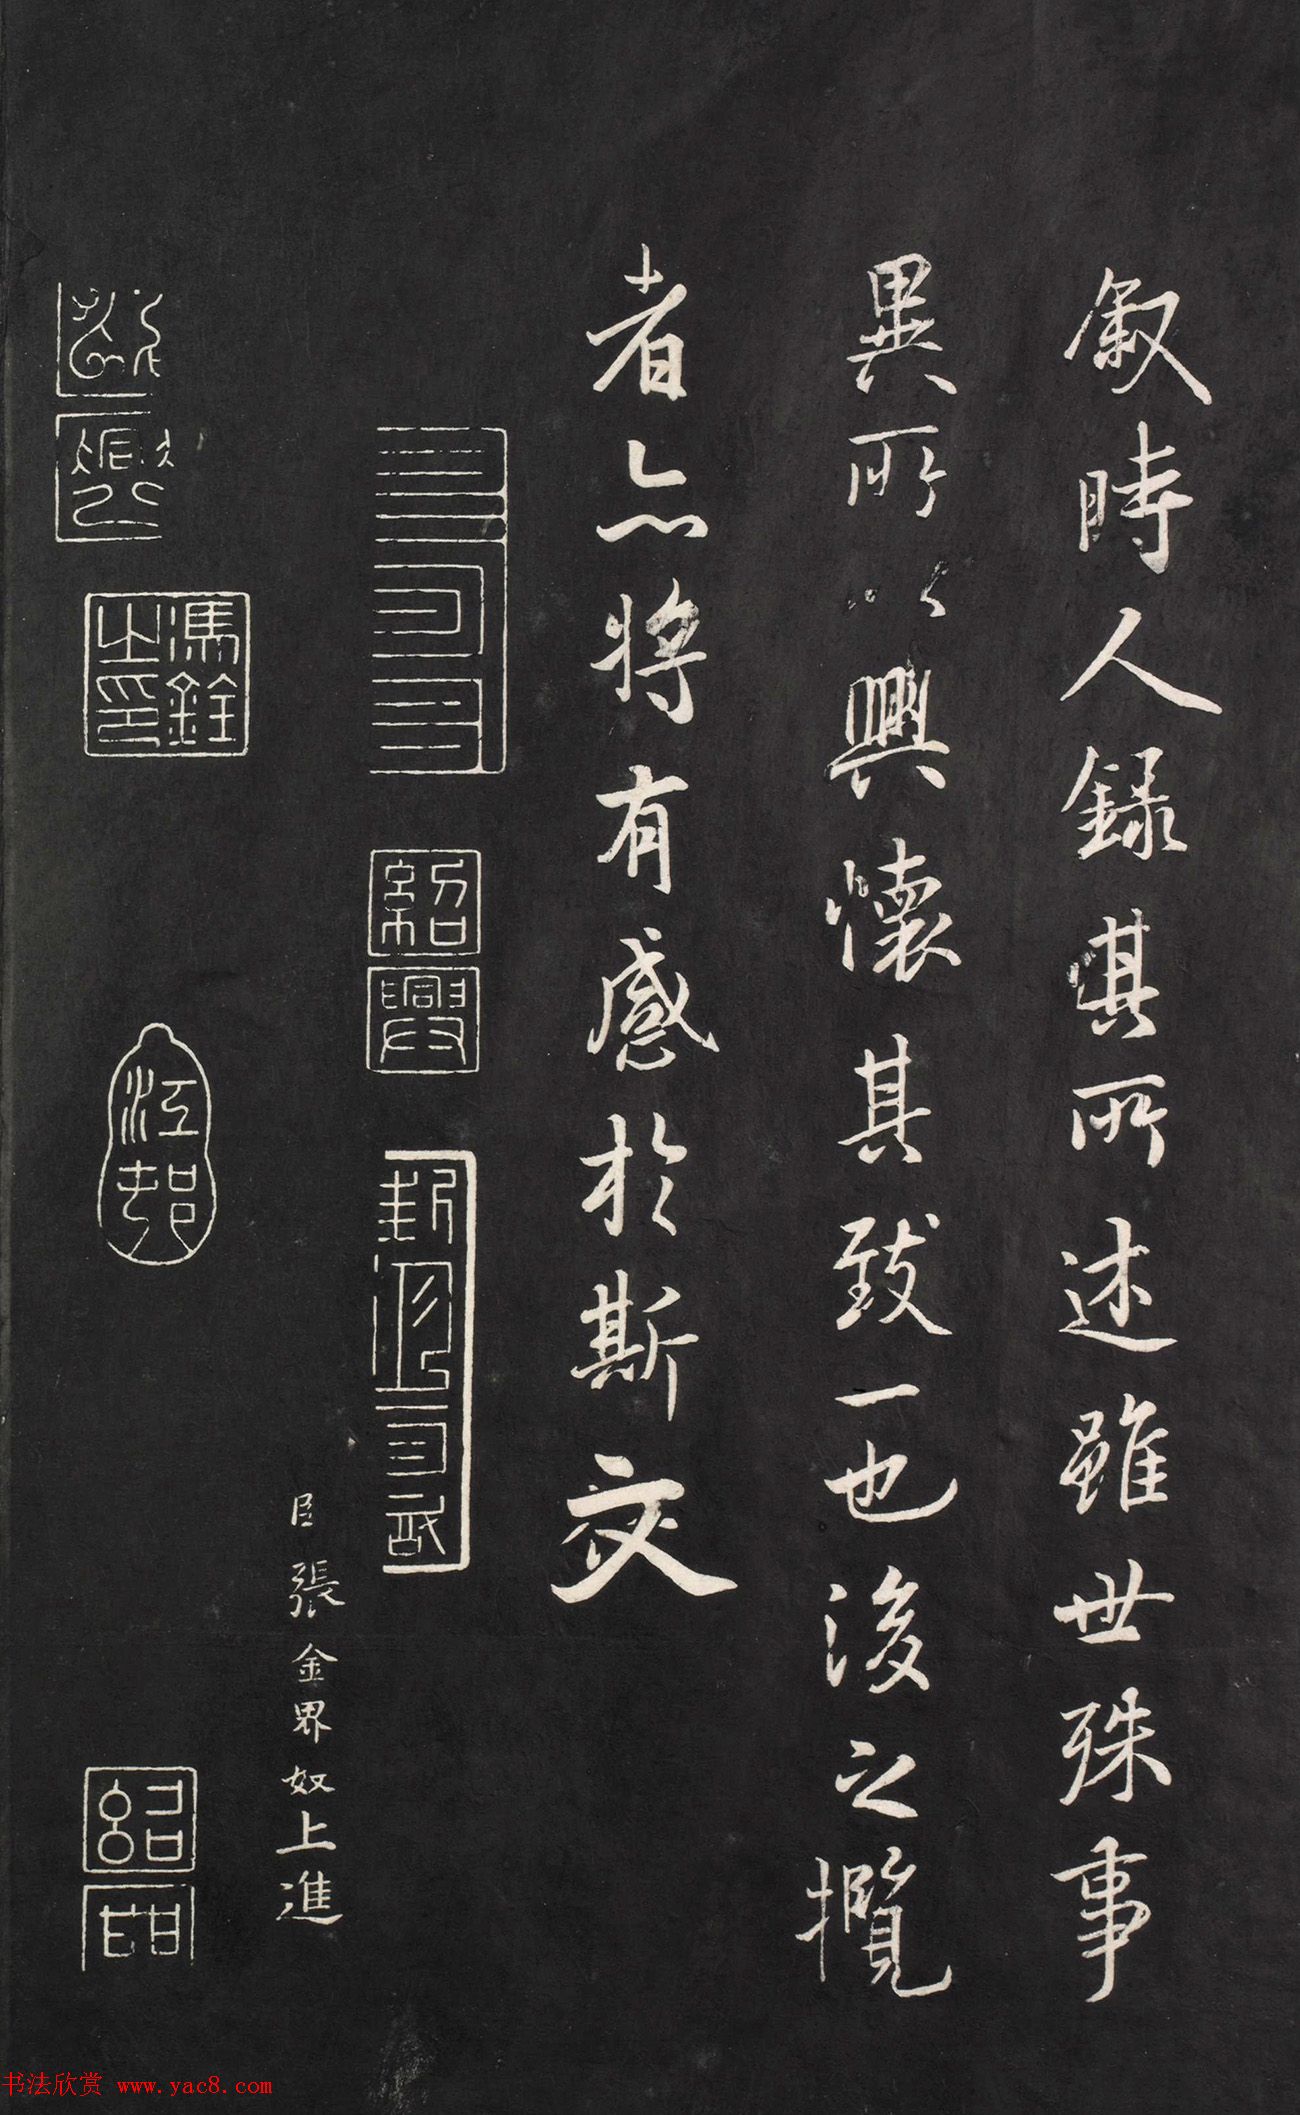 叙時人録其所述雖世殊事
異所以興懷其致一也後之攬
者亦将有感於斯文
臣張金界奴上進
紹興
馮銓之印
江邨
书法欣赏 www.yac8.com